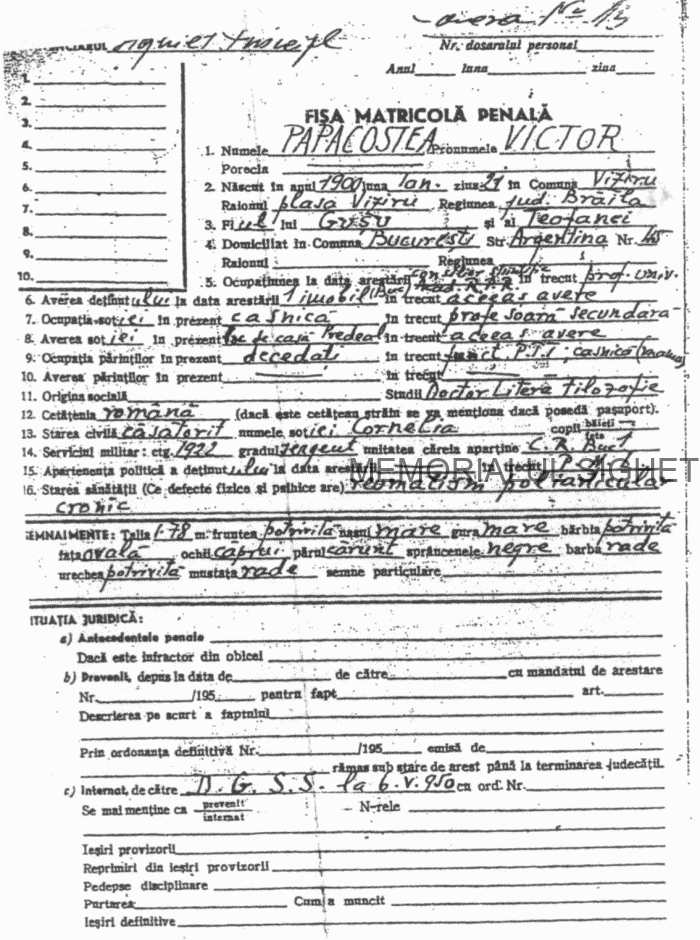 Nr. 13
Nr. dosarului personal
Anul luna ziua
1.
2.
3.
4.
5.
6.
7.
8.
9.
10.
FIȘA MATRICOLĂ PENALĂ
1. Numele PAPACOSTEA Pronumele VICTOR
Porecla
2. Născut în anul 1900 luna Ian. ziua 21 în Comuna Viziru
Raionul plasa Viziru Regiunea jud. Brăila
3. Fiul lui Gușu și al Teofanei
4. Domiciliat în Comuna București Str. Argentina Nr. 45
Raionul Regiunea
5. Ocupațiunea la data arestării în trecut prof. univ.
6. Averea deținutului la data arestării 1 imobil în trecut aceeas avere
7. Ocupația soției în prezent casnică în trecut profesoară secundară
8. Averea soției în prezent loc de casă Predeal în trecut aceeas avere
9. Ocupația părinților în prezent decedați în trecut funct. P.T.T; casnică (mama)
10. Averea părinților în prezent în trecut
11. Origina socială Studii Doctor Litere filozofie
12. Cetățenia română (dacă este cetățean străin se va menționa dacă posedă pașaport).
13. Starea civilă căsătorit numele soției Cornelia copii băieți fete
14. Serviciul militar: ctg. 1922 gradul sergent unitatea căreia aparține C.R. Buc 1
15. Apartenența politică a deținutului la data arestării în trecut
MEMORIALUL SIGHET
16. Starea sănătății (Ce defecte fizice și psihice are) reomatism poliarticular
cronic
SEMNALMENTE: Talia 1.78 m. fruntea potrivită nasul mare gura mare bărbia potrivită
fața ovală ochii căprui părul cărunt sprâncenele negre barba rade
urechea potrivită mustața rade semne particulare
ITUAȚIA JURIDICĂ:
a) Antecedentele penale
Dacă este infractor din obicei
b) Prevenit, depus la data de de către cu mandatul de arestare
Nr. /195 pentru fapt art.
Descrierea pe scurt a faptului
Prin ordonanța definitivă Nr. /195 emisă de
rămas sub stare de arest până la terminarea judecății.
c) Internat, de către D. G. S. S. la 6.V.950 cu ord. Nr.
Se mai menține ca prevenit internat N-rele
Ieșiri provizorii
Reprimiri din ieșiri provizorii
Pedepse disciplinare
Purtarea Cum a muncit
Ieșiri definitive